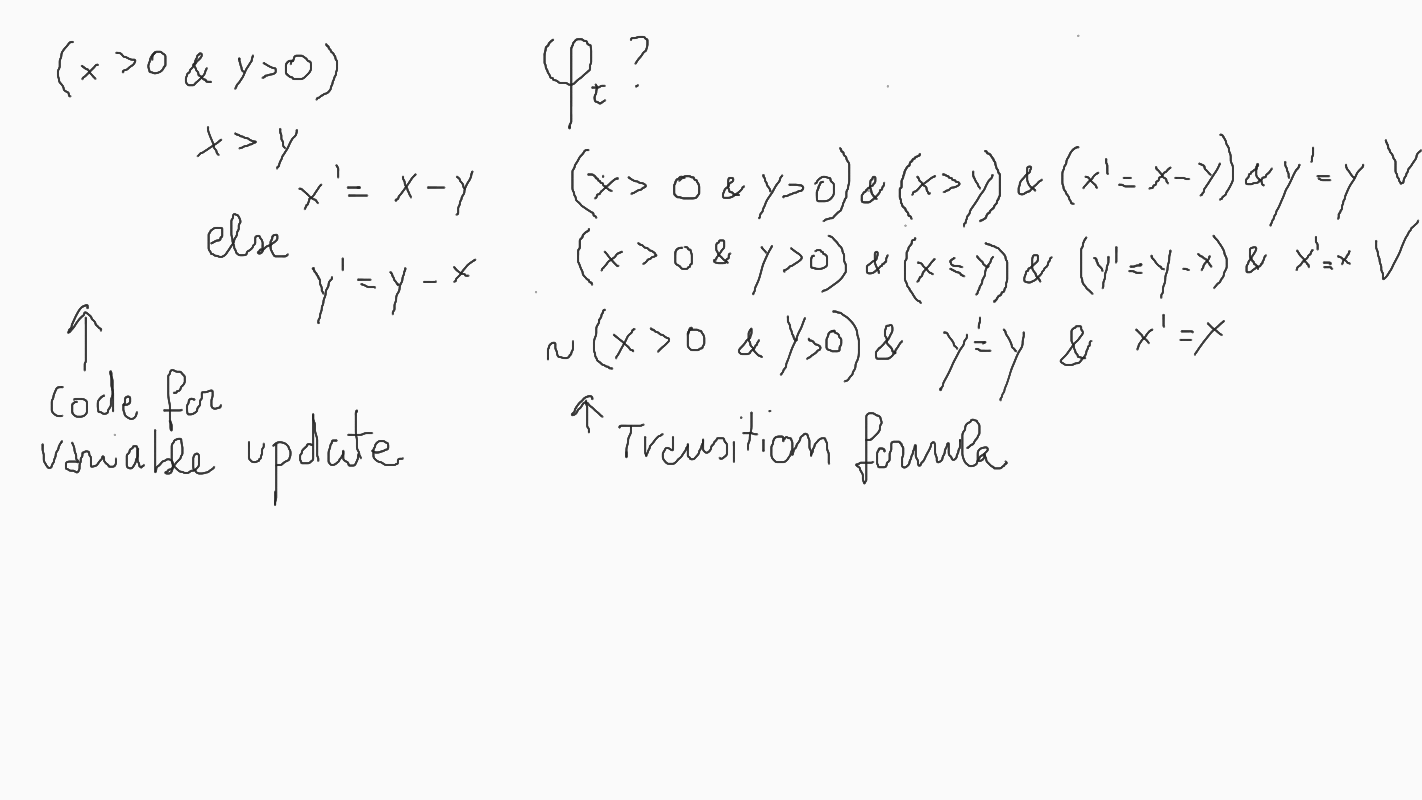 (x > 0 & y > 0)
x > y
x' = x - y
else
y' = y - x
↑
code for
variable update
φt ?
(x > 0 & y > 0) & (x > y) & (x' = x - y) & y' = y V
(x > 0 & y > 0) & (x ≤ y) & (y' = y - x) & x' = x V
~ (x > 0 & y > 0) & y' = y & x' = x
↑ Transition formula